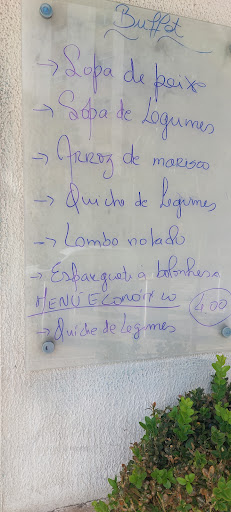 Buffet
→ Sopa de peixe
→ Sopa de Legumes
→ Arroz de marisco
→ Quiche de Legumes
→ Lombo
→ Esparguete á bolonhesa
MENÚ ECONÓMICO 4.00
→ Quiche de Legumes